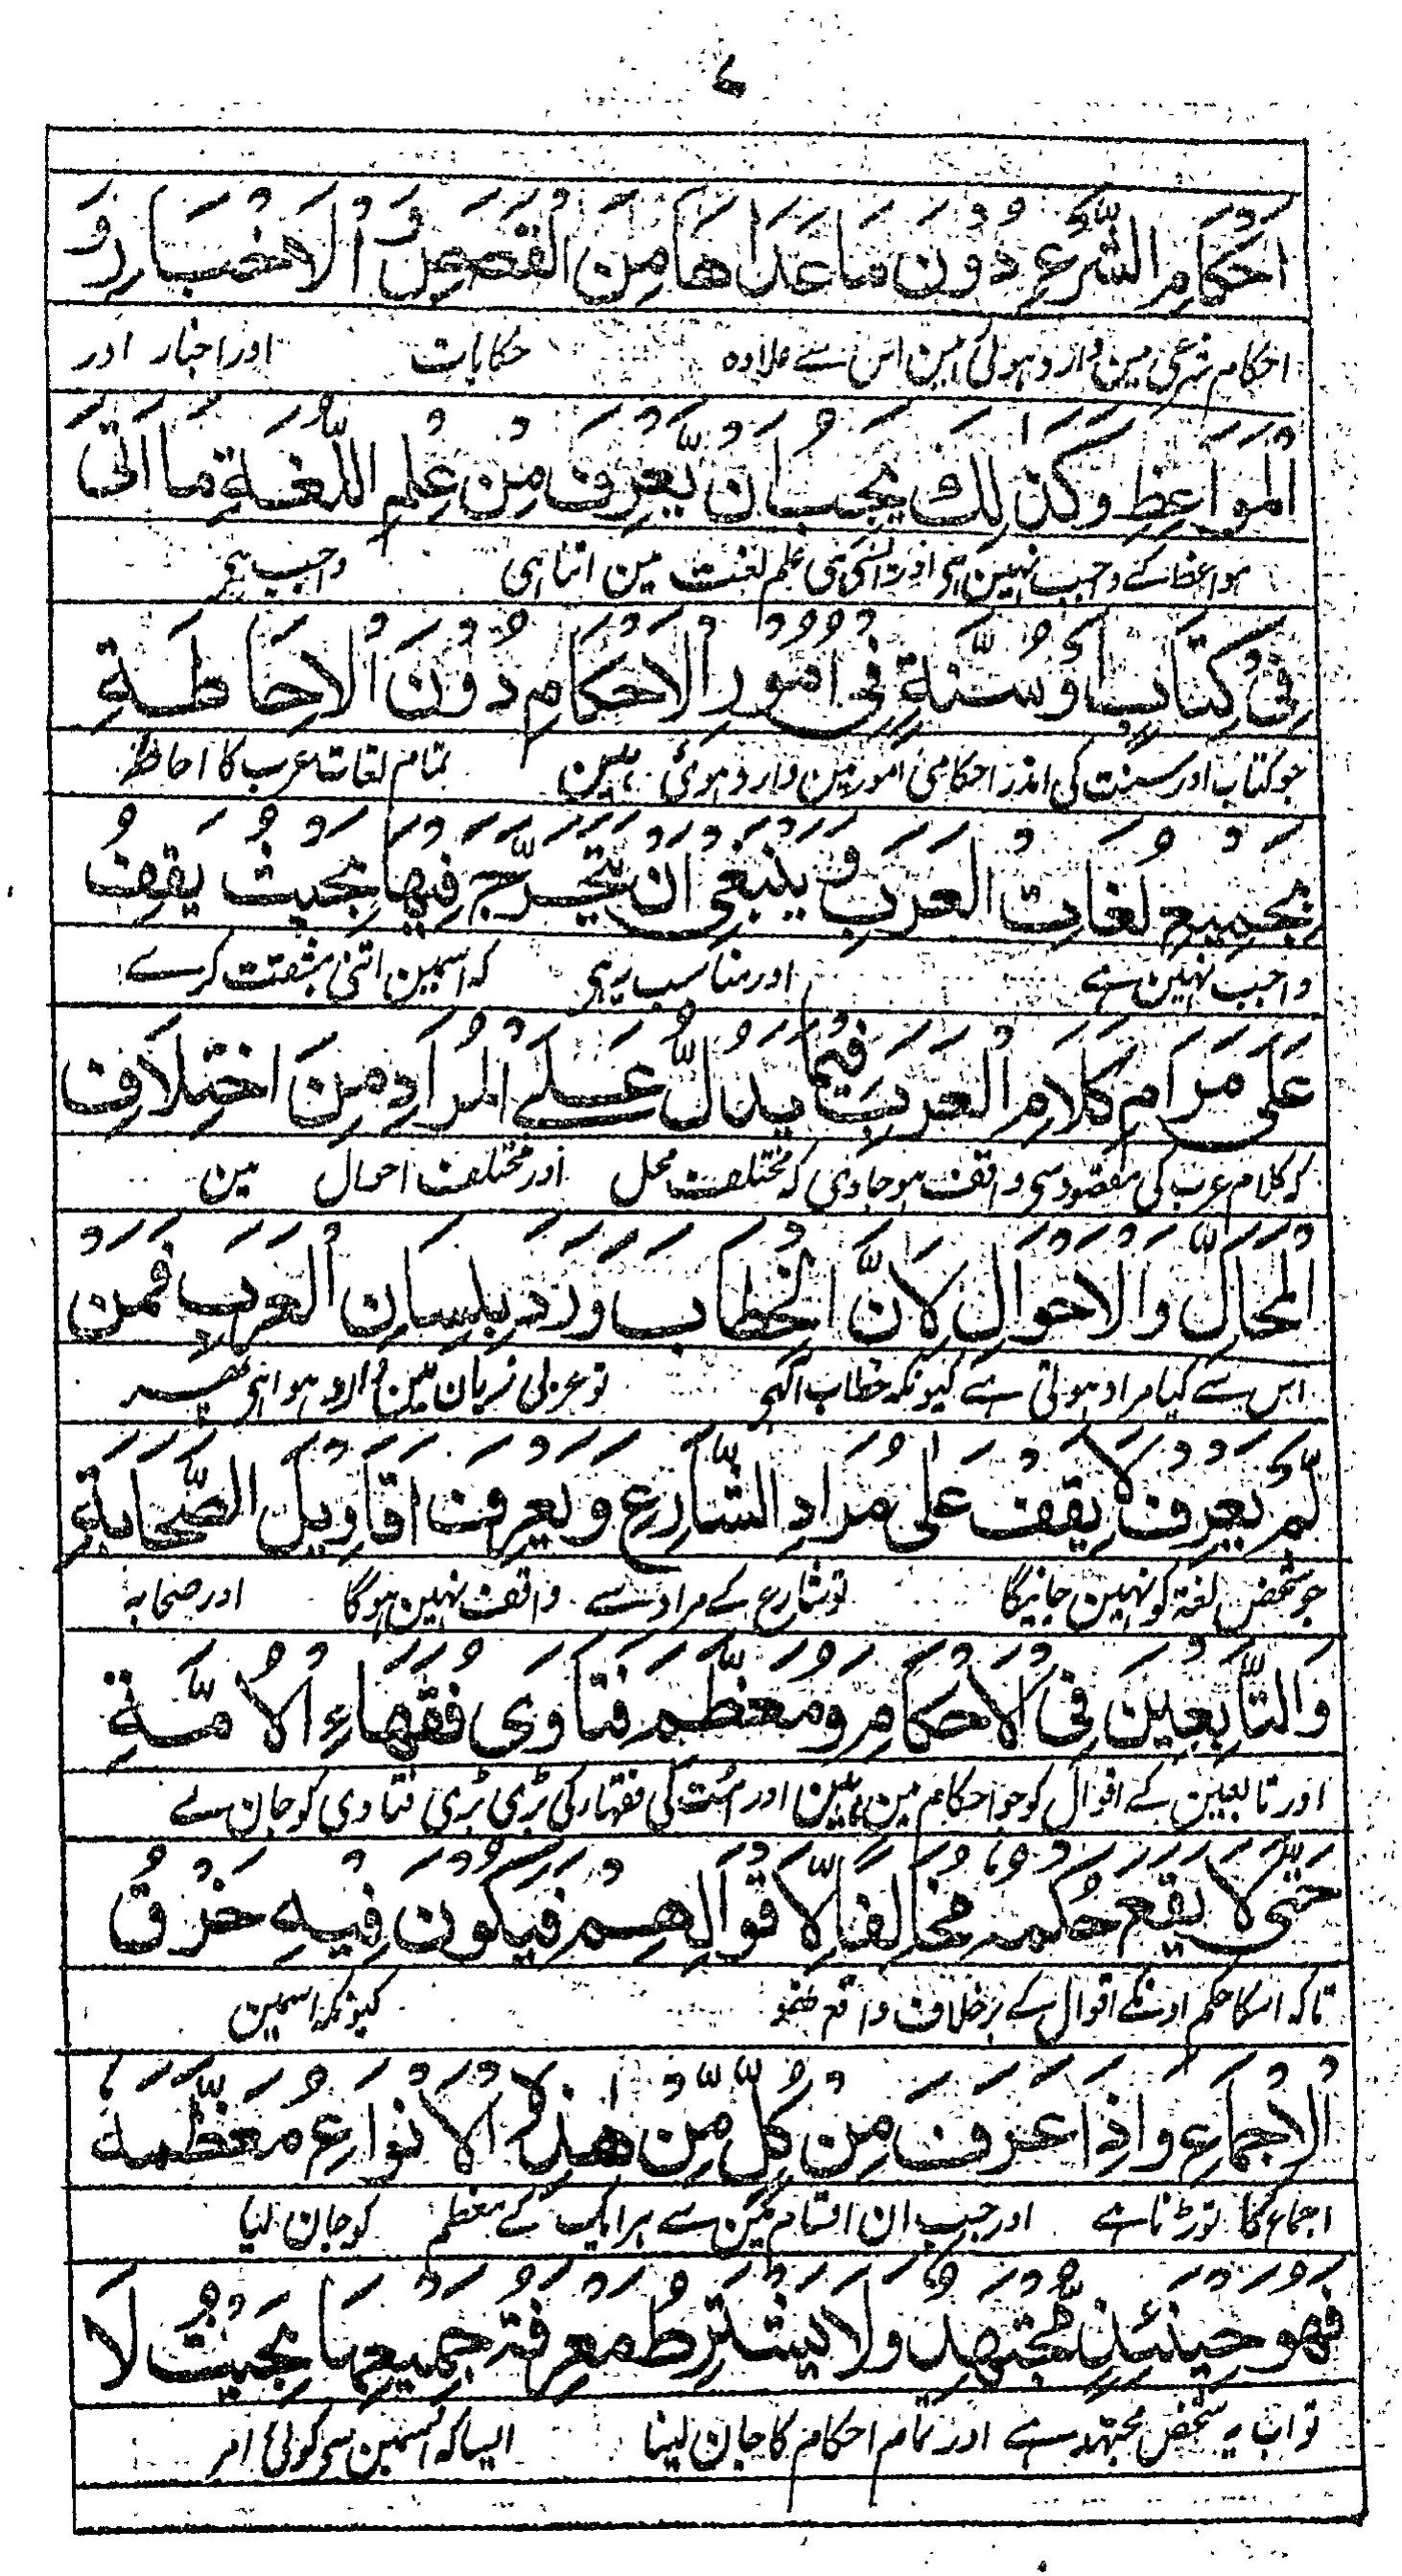 ۷
اَحْكَامِ الشَّرْعِ دُوْنَ مَا عَدَاهَا مِنَ الْقَصَصِ وَالْاَخْبَارِ وَ
احکام شرعی مین وارد ہوئی ہین اس سے علاوہ حکایات اور اخبار اور
الْمَوَاعِظِ وَكَذٰلِكَ يَجِبُ اَنْ يَّعْرِفَ مِنْ عِلْمِ اللُّغَةِ مَا اَتٰى
مواعظ کے واجب نہین ہی اور ایسی ہی علم لغت مین اتنا ہی واجب ہی
فِيْ كِتَابٍ اَوْ سُنَّةٍ فِيْ اُمُوْرِ الْاَحْكَامِ دُوْنَ الْاِحَاطَةِ
جو کتاب اور سنت کی اندر احکامی امور مین وارد ہوئی ہین تمام لغات عرب کا احاطہ
بِجَمِيْعِ لُغَاتِ الْعَرَبِ وَيَنْبَغِيْ اَنْ يَّتَخَرَّجَ فِيْهَا بِحَيْثُ يَقِفُ
واجب نہین ہے اور مناسب یہ ہی کہ اسمین اتنی مشقت کرے
عَلٰى مَرَامِ كَلَامِ الْعَرَبِ فِيْمَا يَدُلُّ عَلَى الْمُرَادِ مِنَ اخْتِلَافِ
کہ کلام عرب کی مقصود سی واقف ہو جاوی کہ مختلف محل اور مختلف احوال مین
الْمَحَالِّ وَالْاَحْوَالِ لِاَنَّ الْخِطَابَ وَرَدَ بِلِسَانِ الْعَرَبِ فَمَنْ
اس سے کیا مراد ہوتی ہے کیونکہ خطاب تو عربی زبان مین وارد ہوا ہی پھر
لَّمْ يَعْرِفْ لَا يَقِفُ عَلٰى مُرَادِ الشَّارِعِ وَيَعْرِفَ اَقَاوِيْلَ الصَّحَابَةِ
جو شخص لغۃ کو نہین جانیگا تو شارع کے مراد سے واقف نہین ہوگا اور صحابہ
وَالتَّابِعِيْنَ فِي الْاَحْكَامِ وَمُعْظَمَ فَتَاوَى فُقَهَاءِ الْاُمَّةِ
اور تابعین کے اقوال کو جو احکام مین ہین اور امت کی فقہا کی بڑی بڑی فتاوی کو جان لے
حَتّٰى لَا يَقَعَ حُكْمُهٗ مُخَالِفًا لِّاَقْوَالِهِمْ فَيَكُوْنَ فِيْهِ خَرْقُ
تاکہ اسکا حکم اونکے اقوال کے برخلاف واقع نہو کیونکہ اسمین
الْاِجْمَاعِ وَاِذَا عَرَفَ مِنْ كُلٍّ مِّنْ هٰذِهِ الْاَنْوَاعِ مُعْظَمَهٗ
اجماع کا توڑنا ہے اور جب ان اقسام مین سے ہر ایک کے معظم کو جان لیا
فَهُوَ حِيْنَئِذٍ مُّجْتَهِدٌ وَّلَا يُشْتَرَطُ مَعْرِفَةُ جَمِيْعِهَا بِحَيْثُ لَا
تو اب یہ شخص مجتہد ہے اور تمام احکام کا جان لینا ایسا کہ اسمین سی کوئی امر